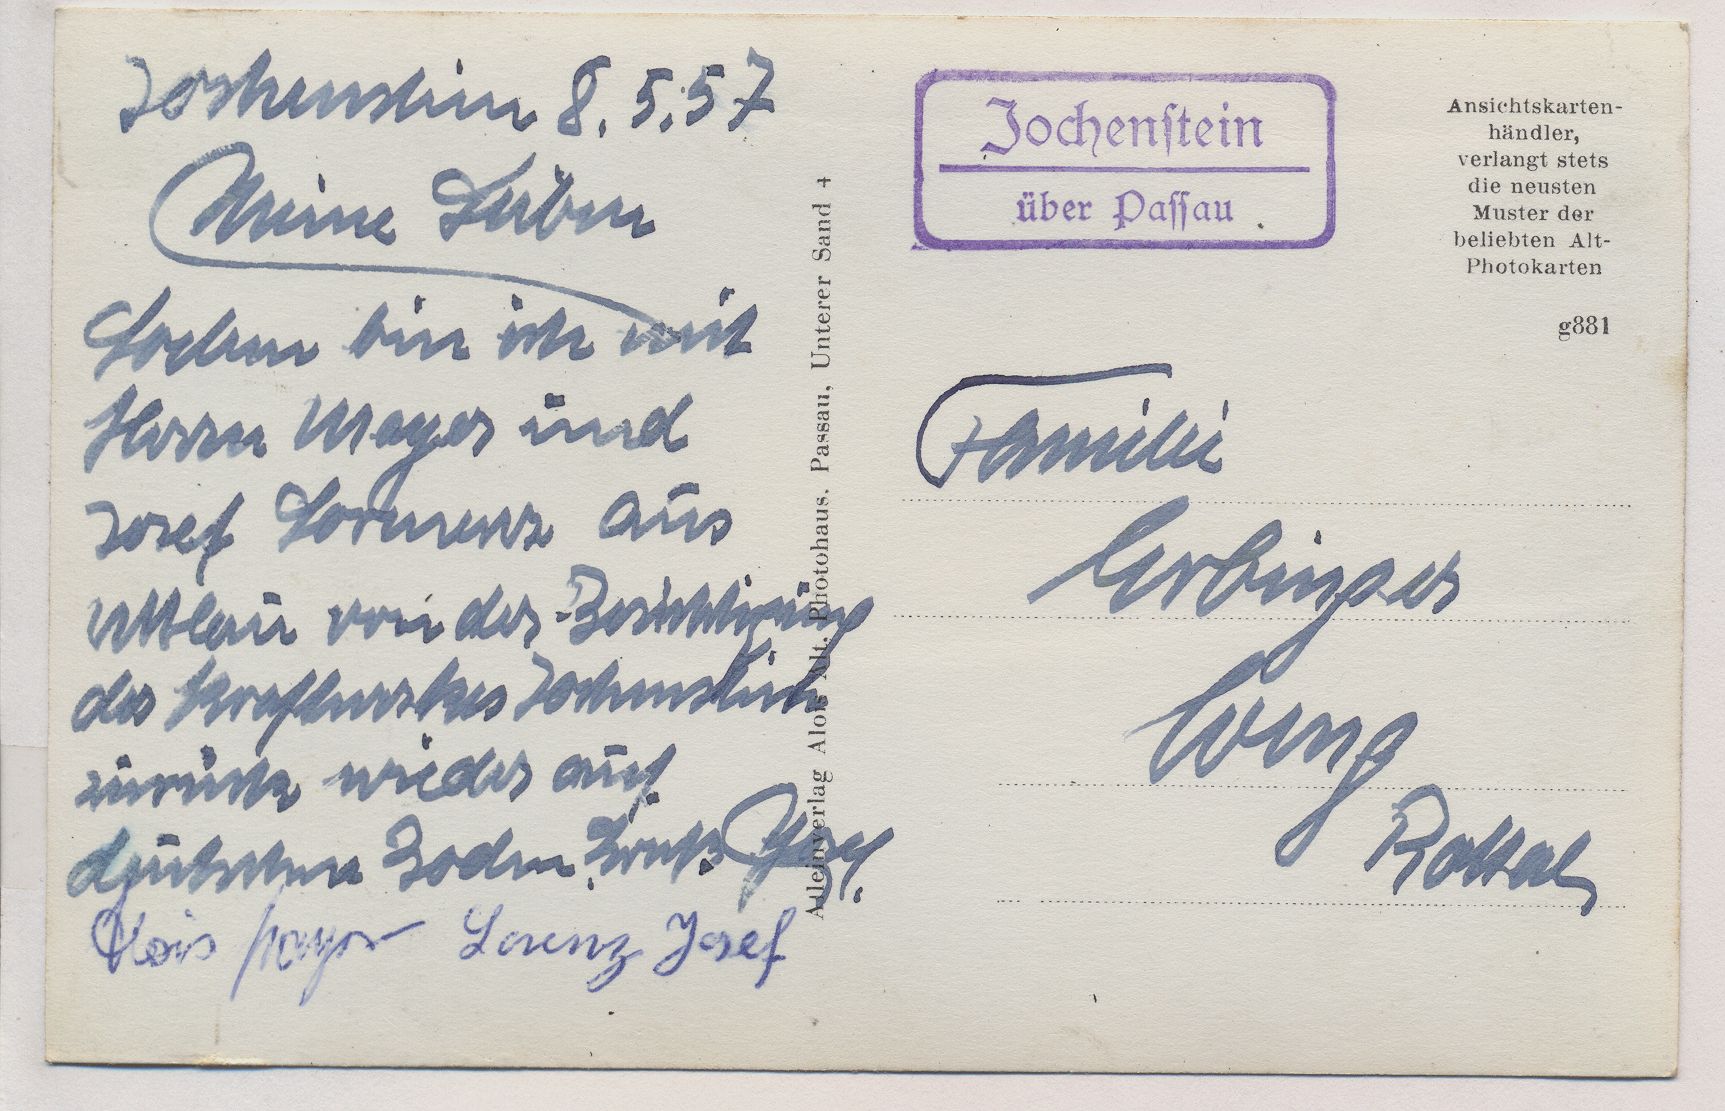 Jochenstein 8.5.57
Meine Lieben
Soeben bin ich mit
Herrn Mayer und
Josef Lorenz aus
Uttlau von der Besichtigung
des Kraftwerkes Jochenstein
zurück wieder auf
deutschen Boden. Gruß Josef.
Alois Mayer Lorenz Josef
Alleinverlag Alois Alt, Photohaus, Passau, Unterer Sand 4
Jochenstein
über Passau
Ansichtskarten-
händler,
verlangt stets
die neusten
Muster der
beliebten Alt-
Photokarten
g881
Familie
Erbinger
Weng
Rottal